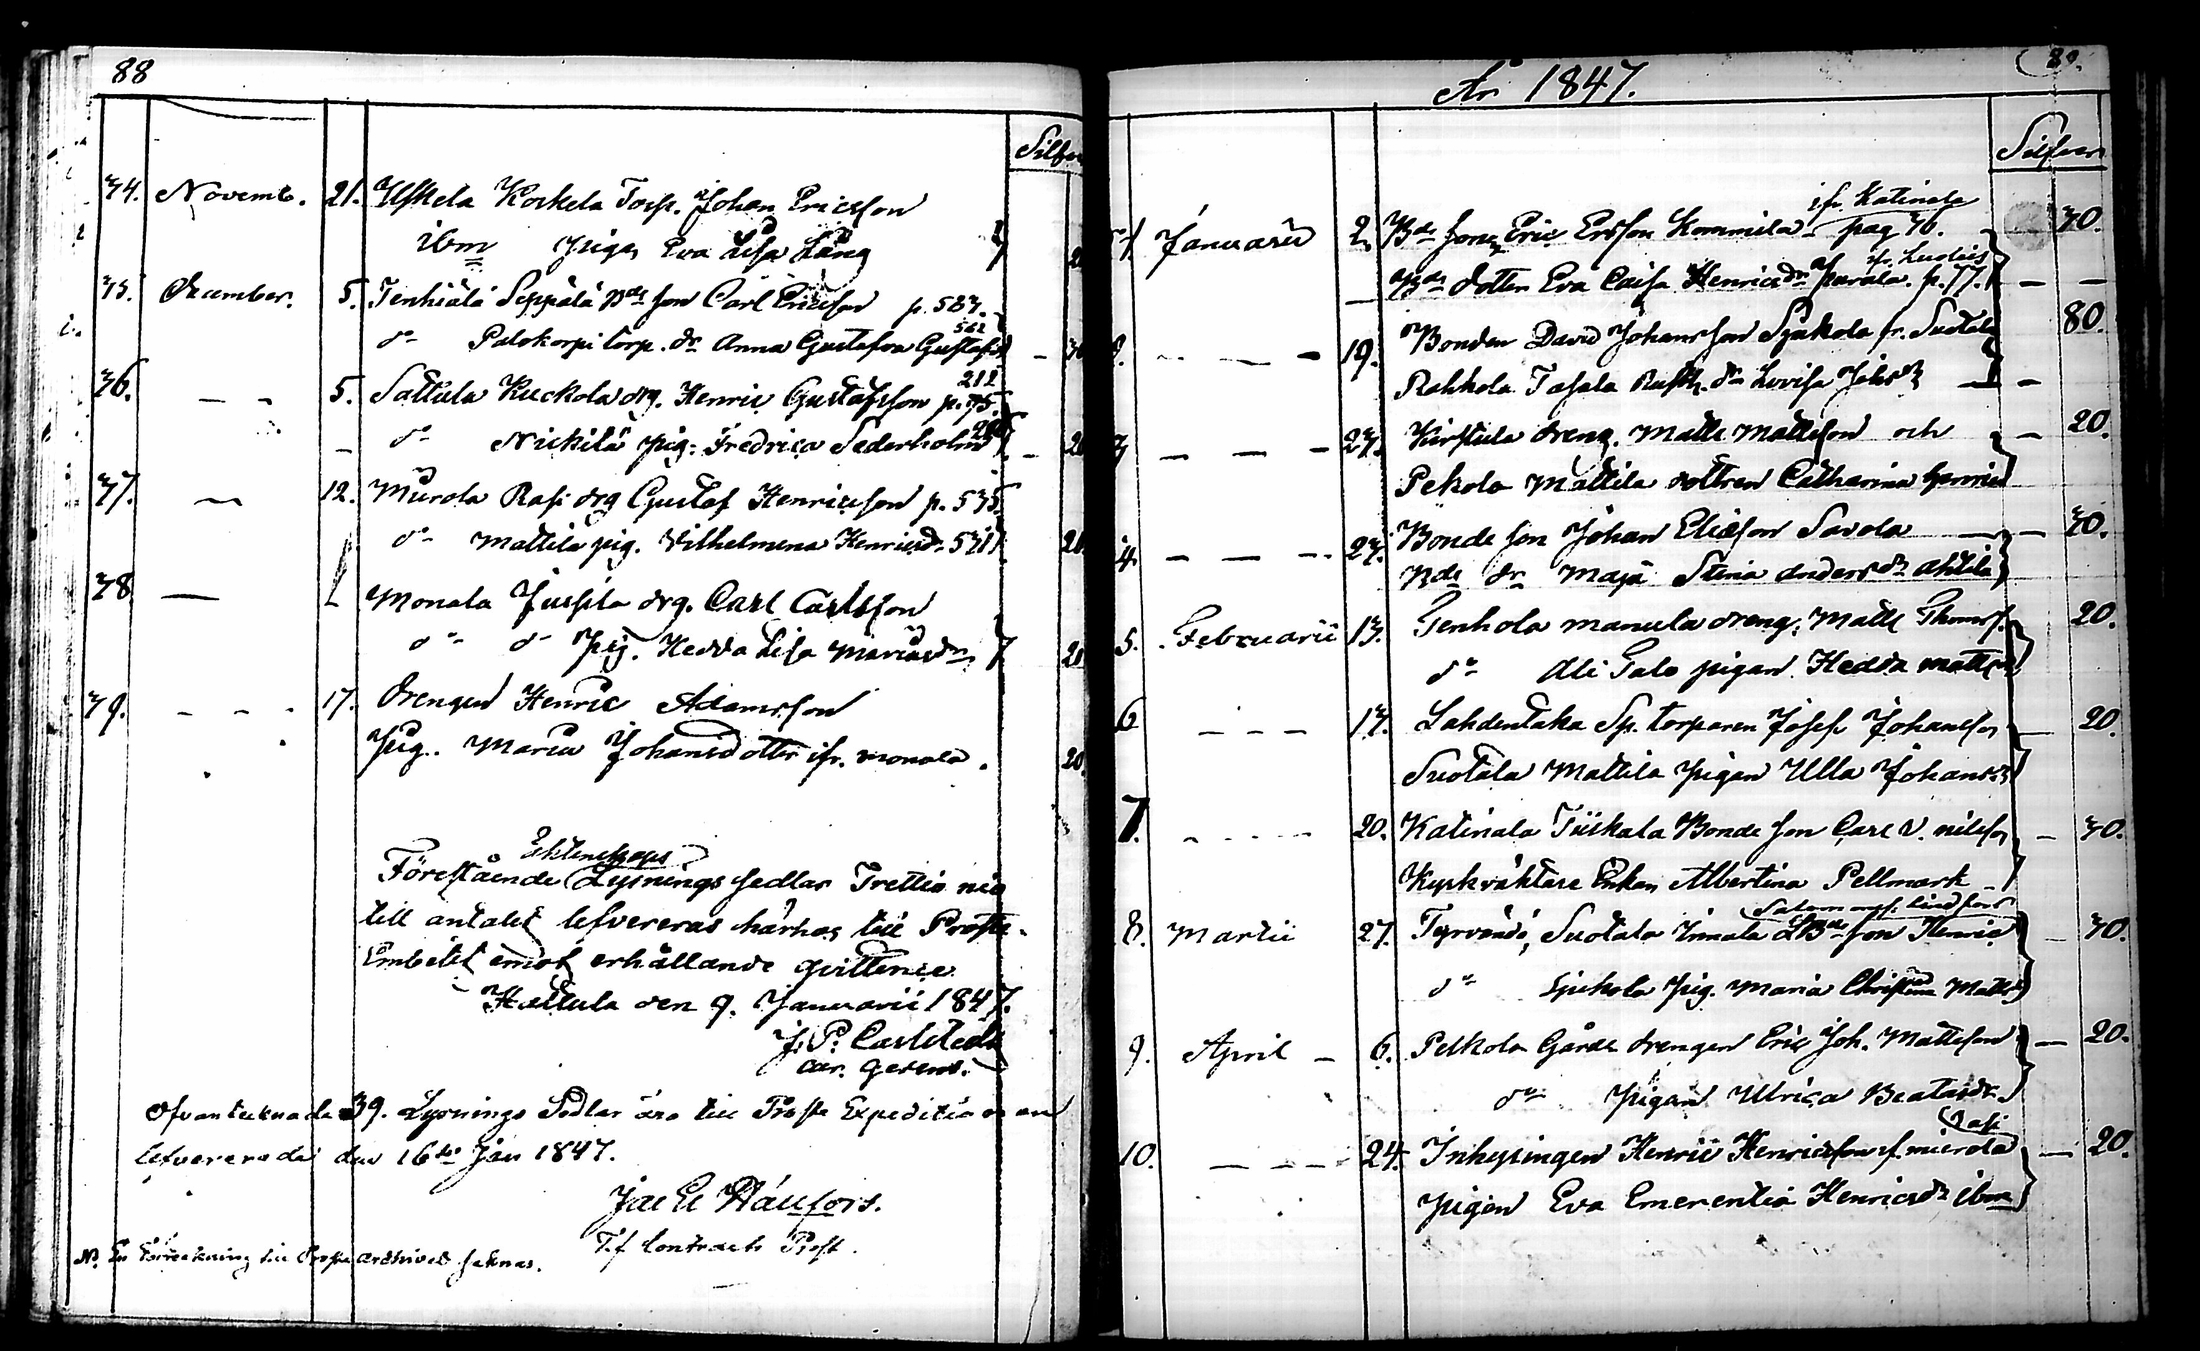 88
Silfver
34. Novemb. 21. Ihalela Korkela Torp. Johan Ericsson
ibm pigan Eva Lisa Lång
35. December. 5. Tenhiälä Seppälä Bde son Carl Ericsson p. 587.
do Palokorpi torp. dr Anna Gustafva Gustafsd 562
36. — - 5. Sattula Kuckola drg. Henric Gustafsson p. 211
do Nickilä pig: Fredrica Sederholm
37. — 12. Murola Rasi drg Gustaf Henricsson p. 575
do Mattila pig. Vilhelmina Henricsdr. 571
38 — Monala Jussila drg. Carl Carlsson
do do pig. Hedda Lisa Mariasdr
39. - - - 17. Drengen Henric Adamsson
Pig. Maria Johansdotter ifr. Monala.
Ecktenskaps
Förestående Lysnings sedlar Trettio nio
till antalet lefvereras härhos till Prosts
Embetet emot erhållande qvittence
Hattula den 9. Januarii 1847.
J. P. Carlstedt
Ofvantecknade 39. Lysnings Sedlar äro till Prosts Expedition
lefvererade den 16de Jan 1847.
T.f. Contracts Prost.
År 1847.
89.
Silfver
1. Januarii 2. Bde Sonen Eric Ersson Kommila ifr. Katinala pag 76. 70.
Bde dotter Eva Caisa Henricsdr Parola p. 77. — —
19. Bonden David Johansson Sjukola fr. Suotala 80.
Rahkola Tasala Rusth. dr Lovisa Johsdr — —
3 — — — 27. Kirstula dreng. Matts Mattsson och — 20.
Pekola Mattila dottren Catharina Henricsd
4. — — — 27. Bonde Son Johan Eliasson Savola — 70.
Bde dr Maja Stina Andersdr Ahlila
5. Februarii 13. Tenhola Manula dreng. Matts Thomss. 20.
do Ali Talo pigan Hedda Mattsd
6 - - - 17. Lahdentaka Sp. torparen Josef Johansson — 20.
Suotala Mattila pigan Ulla Johansdr
7. - - - - 20. Katinala Tiiskala Bonde Son Carl V. Nilsson — 70.
Kyrkväktare Enkan Albertina Pellmark
8. Martii 27. Tyrvändö, Suotala Innala Bde Son Henric — 70.
do Sjukola Pig. Maria Christina Mattsd
9. April — 6. Pelkola Gårds drengen Eric Joh. Mattsson — 20.
do Pigan Ulrica Beatasdr.
10. — — - - 24. Inhysingen Henric Henricsson fr. Mierola Rasi — 20.
pigan Eva Emerentia Henricsdr ibm